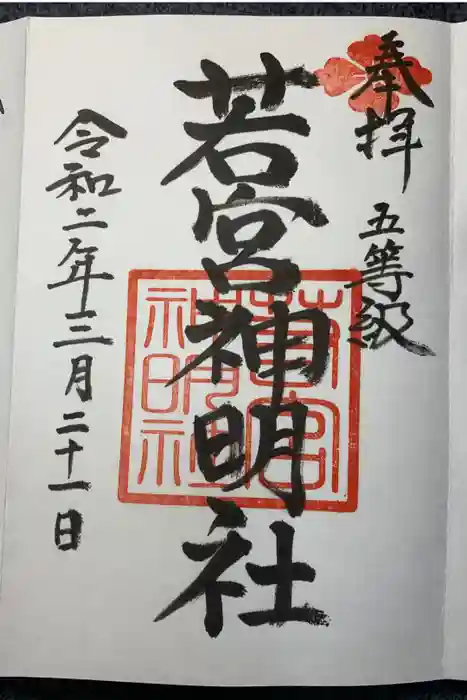 奉拝
五等級
若宮神明社
令和二年三月二十一日
若宮
神明社